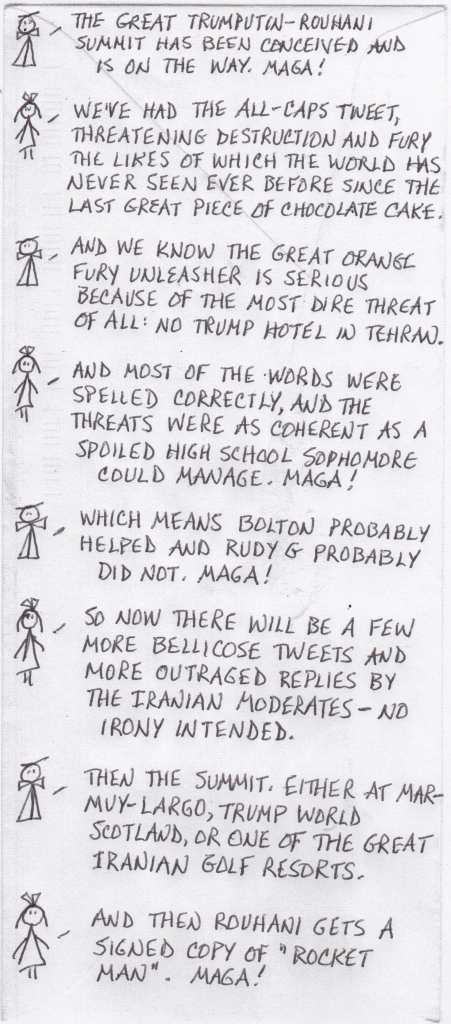 THE GREAT TRUMPUTIN-ROUHANI
SUMMIT HAS BEEN CONCEIVED AND
IS ON THE WAY. MAGA!
WE'VE HAD THE ALL-CAPS TWEET,
THREATENING DESTRUCTION AND FURY
THE LIKES OF WHICH THE WORLD HAS
NEVER SEEN EVER BEFORE SINCE THE
LAST GREAT PIECE OF CHOCOLATE CAKE.
AND WE KNOW THE GREAT ORANGE
FURY UNLEASHER IS SERIOUS
BECAUSE OF THE MOST DIRE THREAT
OF ALL: NO TRUMP HOTEL IN TEHRAN.
AND MOST OF THE WORDS WERE
SPELLED CORRECTLY, AND THE
THREATS WERE AS COHERENT AS A
SPOILED HIGH SCHOOL SOPHOMORE
COULD MANAGE. MAGA!
WHICH MEANS BOLTON PROBABLY
HELPED AND RUDY G PROBABLY
DID NOT. MAGA!
SO NOW THERE WILL BE A FEW
MORE BELLICOSE TWEETS AND
MORE OUTRAGED REPLIES BY
THE IRANIAN MODERATES - NO
IRONY INTENDED.
THEN THE SUMMIT. EITHER AT MAR-
MUY-LARGO, TRUMP WORLD
SCOTLAND, OR ONE OF THE GREAT
IRANIAN GOLF RESORTS.
AND THEN ROUHANI GETS A
SIGNED COPY OF "ROCKET
MAN". MAGA!